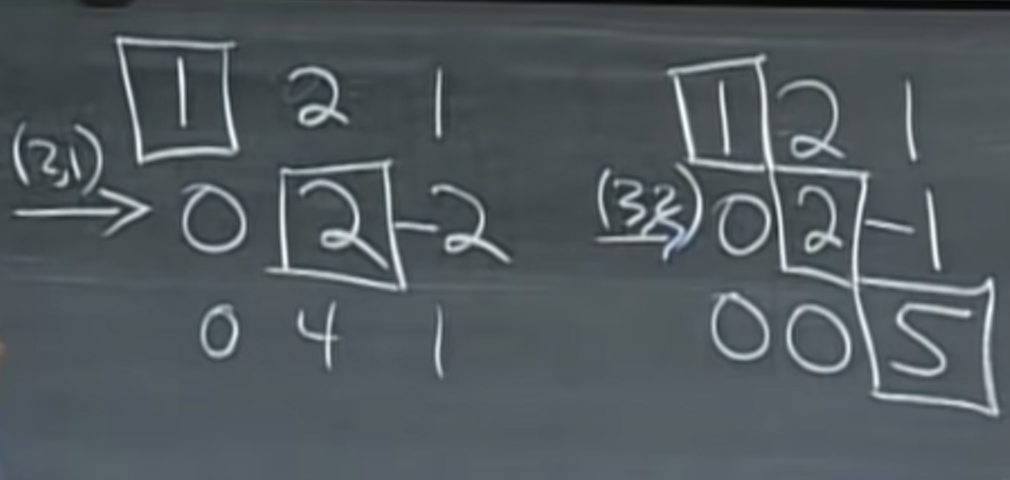 1 2 1 1 2 1
(2,1) → 0 2 -2 (3,2) 0 2 -1
0 4 1 0 0 5